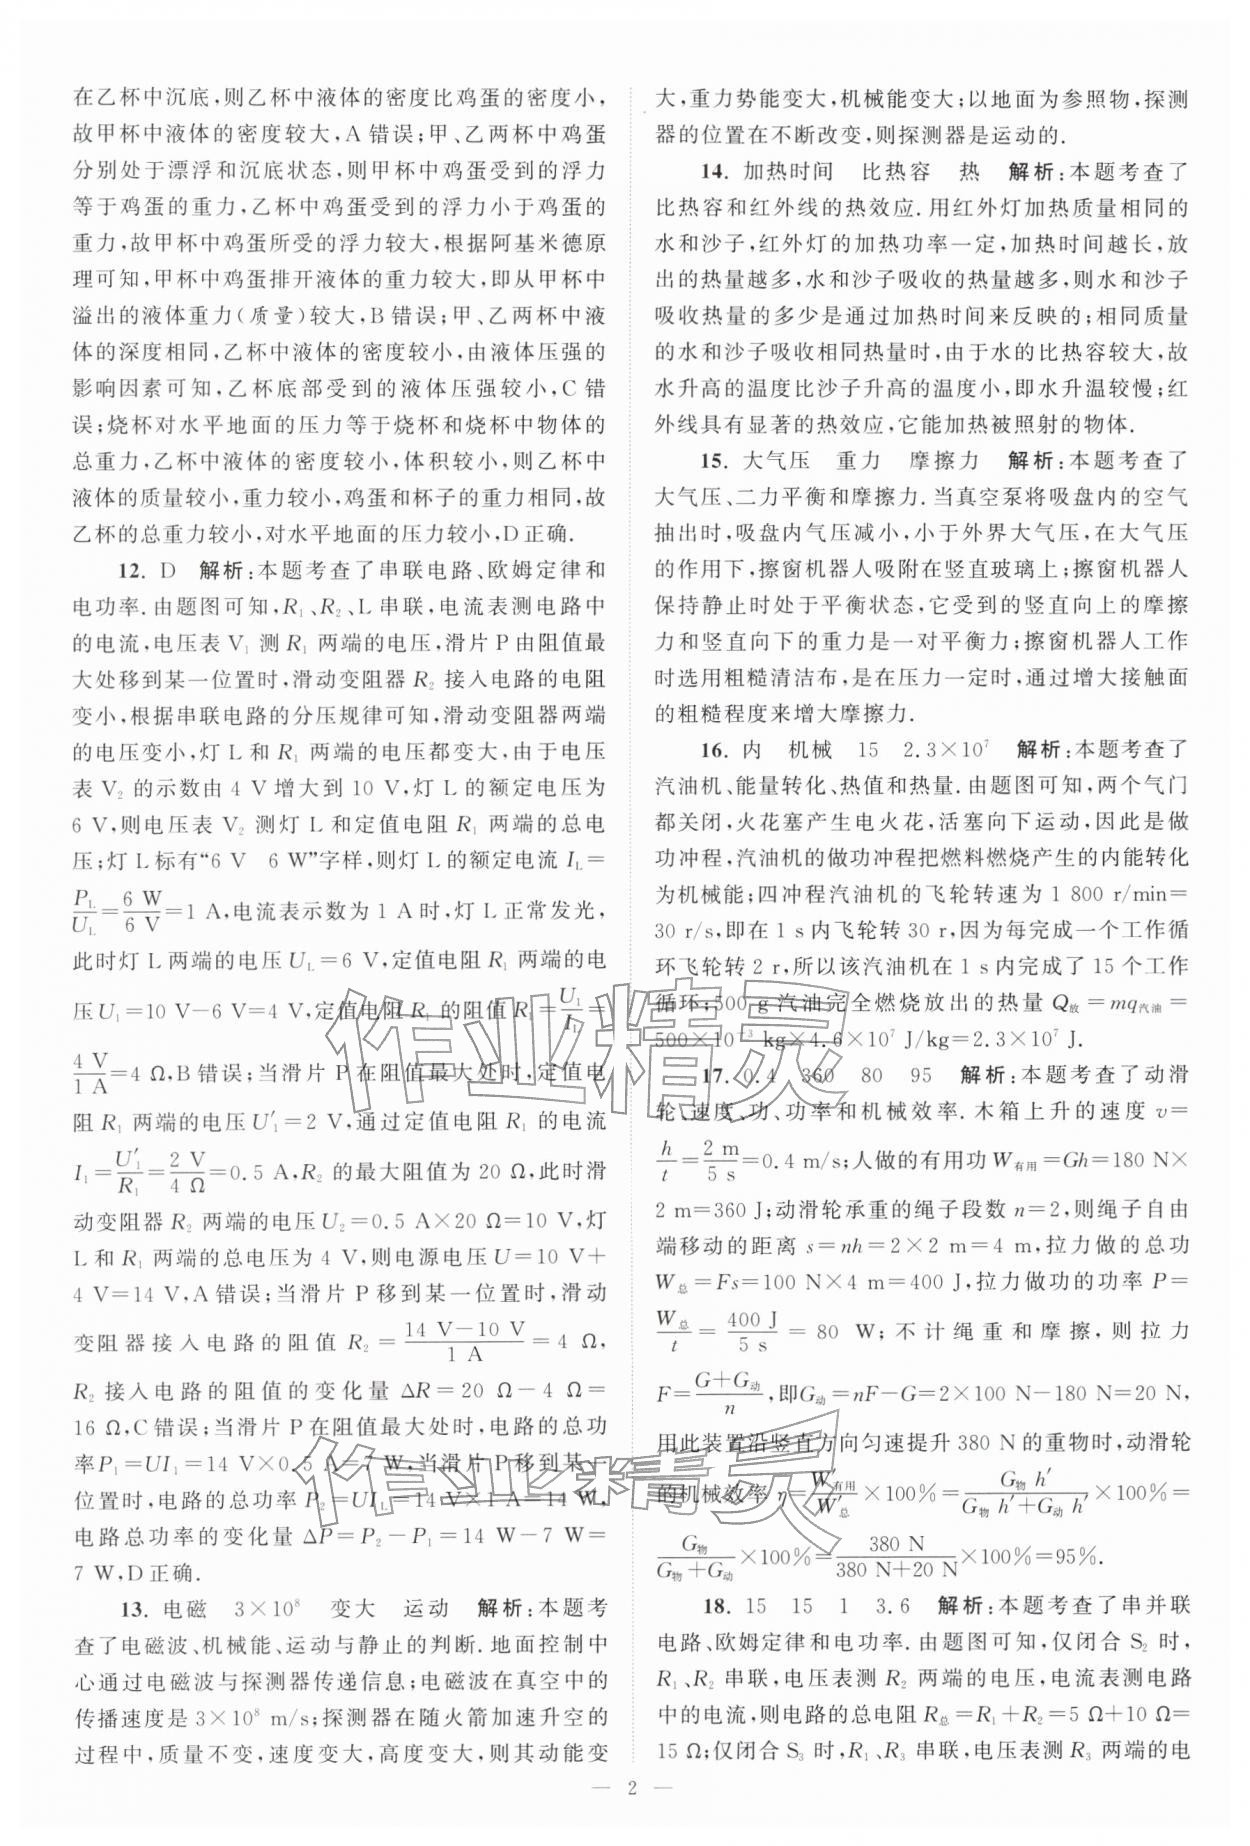 在乙杯中沉底,则乙杯中液体的密度比鸡蛋的密度小,
故甲杯中液体的密度较大,A 错误;甲、乙两杯中鸡蛋
分别处于漂浮和沉底状态,则甲杯中鸡蛋受到的浮力
等于鸡蛋的重力,乙杯中鸡蛋受到的浮力小于鸡蛋的
重力,故甲杯中鸡蛋所受的浮力较大,根据阿基米德原
理可知,甲杯中鸡蛋排开液体的重力较大,即从甲杯中
溢出的液体重力(质量)较大,B 错误;甲、乙两杯中液
体的深度相同,乙杯中液体的密度较小,由液体压强的
影响因素可知,乙杯底部受到的液体压强较小,C 错
误;烧杯对水平地面的压力等于烧杯和烧杯中物体的
总重力,乙杯中液体的密度较小,体积较小,则乙杯中
液体的质量较小,重力较小,鸡蛋和杯子的重力相同,故
乙杯的总重力较小,对水平地面的压力较小,D正确.
12. D 解析:本题考查了串联电路、欧姆定律和
电功率.由题图可知,R₁、R₂、L 串联,电流表测电路中
的电流,电压表 V₁ 测 R₁ 两端的电压,滑片 P 由阻值最
大处移到某一位置时,滑动变阻器 R₂ 接入电路的电阻
变小,根据串联电路的分压规律可知,滑动变阻器两端
的电压变小,灯 L 和 R₁ 两端的电压都变大,由于电压
表 V₂ 的示数由 4 V 增大到 10 V,灯 L 的额定电压为
6 V,则电压表 V₂ 测灯 L 和定值电阻 R₁ 两端的总电
压;灯 L 标有“6 V 6 W”字样,则灯 L 的额定电流 I_L=
P_L/U_L=6 W/6 V=1 A,电流表示数为 1 A 时,灯 L 正常发光,
此时灯 L 两端的电压 U_L=6 V,定值电阻 R₁ 两端的电
压 U₁=10 V-6 V=4 V,定值电阻 R₁ 的阻值 R₁=U₁/I₁=
4 V/1 A=4 Ω,B 错误;当滑片 P 在阻值最大处时,定值电
阻 R₁ 两端的电压 U′₁=2 V,通过定值电阻 R₁ 的电流
I₁=U′₁/R₁=2 V/4 Ω=0.5 A,R₂ 的最大阻值为 20 Ω,此时滑
动变阻器 R₂ 两端的电压 U₂=0.5 A×20 Ω=10 V,灯
L 和 R₁ 两端的总电压为 4 V,则电源电压 U=10 V+
4 V=14 V,A 错误;当滑片 P 移到某一位置时,滑动
变阻器接入电路的阻值 R₂=14 V-10 V/1 A=4 Ω,
R₂ 接入电路的阻值的变化量 ΔR=20 Ω-4 Ω=
16 Ω,C 错误;当滑片 P 在阻值最大处时,电路的总功
率P₁=UI₁=14 V×0.5 A=7 W,当滑片 P 移到某一
位置时,电路的总功率 P₂=UI_L=14 V×1 A=14 W,
电路总功率的变化量 ΔP=P₂-P₁=14 W-7 W=
7 W,D正确.
13. 电磁 3×10⁸ 变大 运动 解析:本题考
查了电磁波、机械能、运动与静止的判断.地面控制中
心通过电磁波与探测器传递信息;电磁波在真空中的
传播速度是 3×10⁸ m/s;探测器在随火箭加速升空的
过程中,质量不变,速度变大,高度变大,则其动能变
大,重力势能变大,机械能变大;以地面为参照物,探测
器的位置在不断改变,则探测器是运动的.
14. 加热时间 比热容 热 解析:本题考查了
比热容和红外线的热效应.用红外灯加热质量相同的
水和沙子,红外灯的加热功率一定,加热时间越长,放
出的热量越多,水和沙子吸收的热量越多,则水和沙子
吸收热量的多少是通过加热时间来反映的;相同质量
的水和沙子吸收相同热量时,由于水的比热容较大,故
水升高的温度比沙子升高的温度小,即水升温较慢;红
外线具有显著的热效应,它能加热被照射的物体.
15. 大气压 重力 摩擦力 解析:本题考查了
大气压、二力平衡和摩擦力.当真空泵将吸盘内的空气
抽出时,吸盘内气压减小,小于外界大气压,在大气压
的作用下,擦窗机器人吸附在竖直玻璃上;擦窗机器人
保持静止时处于平衡状态,它受到的竖直向上的摩擦
力和竖直向下的重力是一对平衡力;擦窗机器人工作
时选用粗糙清洁布,是在压力一定时,通过增大接触面
的粗糙程度来增大摩擦力.
16. 内 机械 15 2.3×10⁷ 解析:本题考查了
汽油机、能量转化、热值和热量.由题图可知,两个气门
都关闭,火花塞产生电火花,活塞向下运动,因此是做
功冲程,汽油机的做功冲程把燃料燃烧产生的内能转化
为机械能;四冲程汽油机的飞轮转速为 1 800 r/min=
30 r/s,即在 1 s 内飞轮转 30 r,因为每完成一个工作循
环飞轮转 2 r,所以该汽油机在 1 s 内完成了 15 个工作
循环;500 g 汽油完全燃烧放出的热量 Q放=mq汽油=
500×10⁻³ kg×4.6×10⁷ J/kg=2.3×10⁷ J.
17. 0.4 360 80 95 解析:本题考查了动滑
轮、速度、功、功率和机械效率.木箱上升的速度 v=
h/t=2 m/5 s=0.4 m/s;人做的有用功 W有用=Gh=180 N×
2 m=360 J;动滑轮承重的绳子段数 n=2,则绳子自由
端移动的距离 s=nh=2×2 m=4 m,拉力做的总功
W总=Fs=100 N×4 m=400 J,拉力做功的功率 P=
W总/t=400 J/5 s=80 W;不计绳重和摩擦,则拉力
F=G+G动/n,即G动=nF-G=2×100 N-180 N=20 N,
用此装置沿竖直方向匀速提升 380 N 的重物时,动滑轮
的机械效率 η=W′有用/W′总×100%=G物 h′/G物 h′+G动 h′×100%=
G物/G物+G动×100%=380 N/380 N+20 N×100%=95%.
18. 15 15 1 3.6 解析:本题考查了串并联
电路、欧姆定律和电功率.由题图可知,仅闭合 S₂ 时,
R₁、R₂ 串联,电压表测 R₂ 两端的电压,电流表测电路
中的电流,则电路的总电阻 R总=R₁+R₂=5 Ω+10 Ω=
15 Ω;仅闭合 S₃ 时,R₁、R₃ 串联,电压表测 R₃ 两端的电
— 2 —
作业精灵
作业精灵